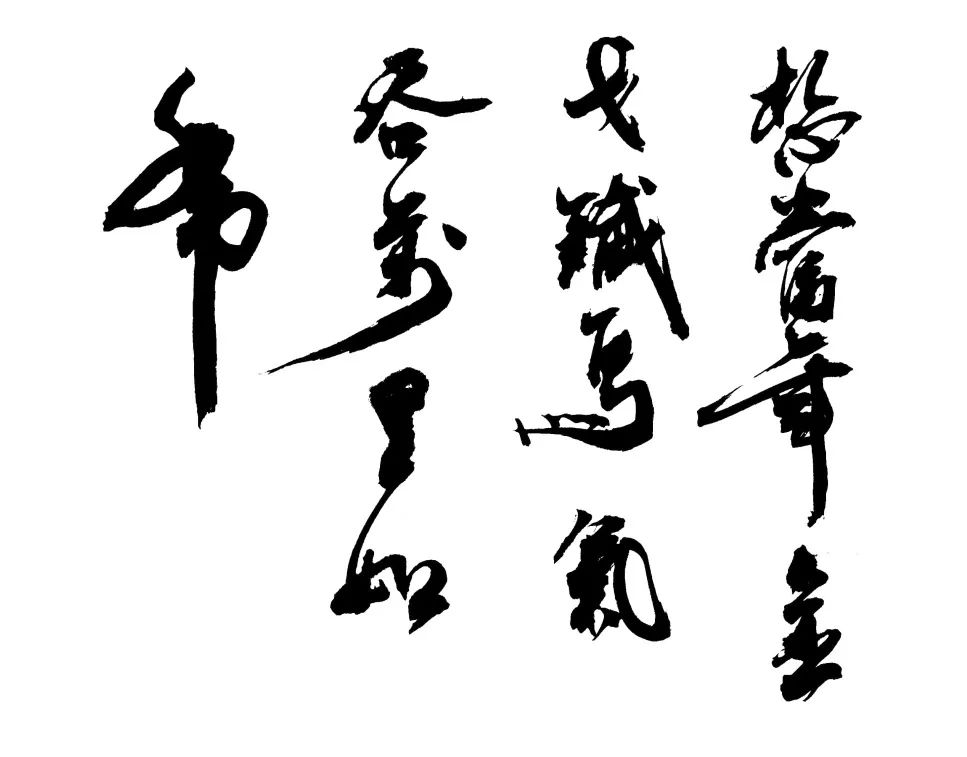 想當年金
戈鐵馬氣
吞萬里如
虎